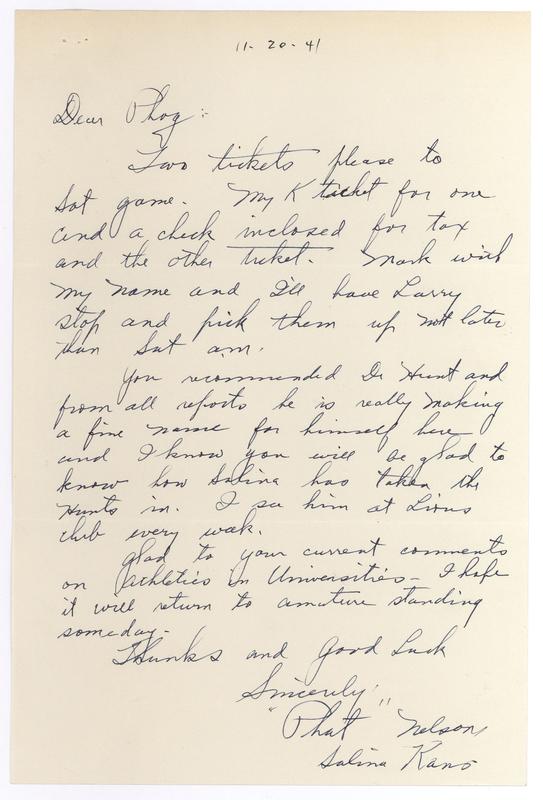 11-20-41
Dear Phog:
Two tickets please to
Sat game. My K ticket for one
and a check inclosed for tax
and the other ticket. Mark with
my name and I'll have Larry
stop and pick them up not later
than Sat a.m.
You recommended Dr Hunt and
from all reports he is really making
a fine name for himself here
and I know you will be glad to
know how Salina has taken the
Hunts in. I see him at Lions
club every week.
Glad to your current comments
on Athletics in Universities - I hope
it will return to amature standing
someday.
Thanks and Good Luck
Sincerely
"Phat" Nelson
Salina Kans